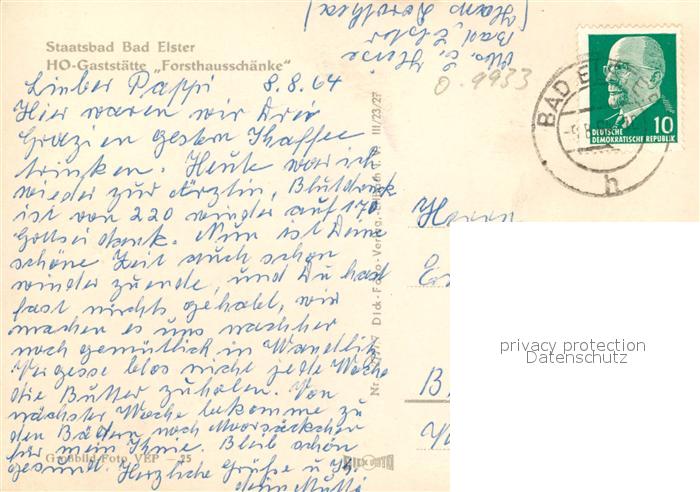 Staatsbad Bad Elster
HO-Gaststätte „Forsthausschänke"
Lieber Pappi 8.8.64
Hier waren wir Drei
Grazien gestern Kaffee
trinken. Heute war ich
wieder zur Ärztin, Blutdruck
ist von 220 wieder auf 170
Gottseidank. Nun ist Deine
schöne Zeit auch schon
wieder zuende, und Du hast
fast nichts gehabt, wir
machen es uns nachher
noch gemütlich in Wandlitz
Vergesse blos nicht jede Woche
die Butter zuholen. Von
nächster Woche bekomme zu
den Bädern noch Moorsäckchen
für mein Knie. Bleib schön
gesund. Herzliche Grüße u. Ks.
deine Mutti
Großbild-Foto VEP — 25
Bad Elster
(Haus Dorothea)
O. 9933
III/23/27
Dick-Foto-Verlag,
BAD ELSTER
h
10
DEUTSCHE
DEMOKRATISCHE REPUBLIK
Herrn
privacy protection
Datenschutz